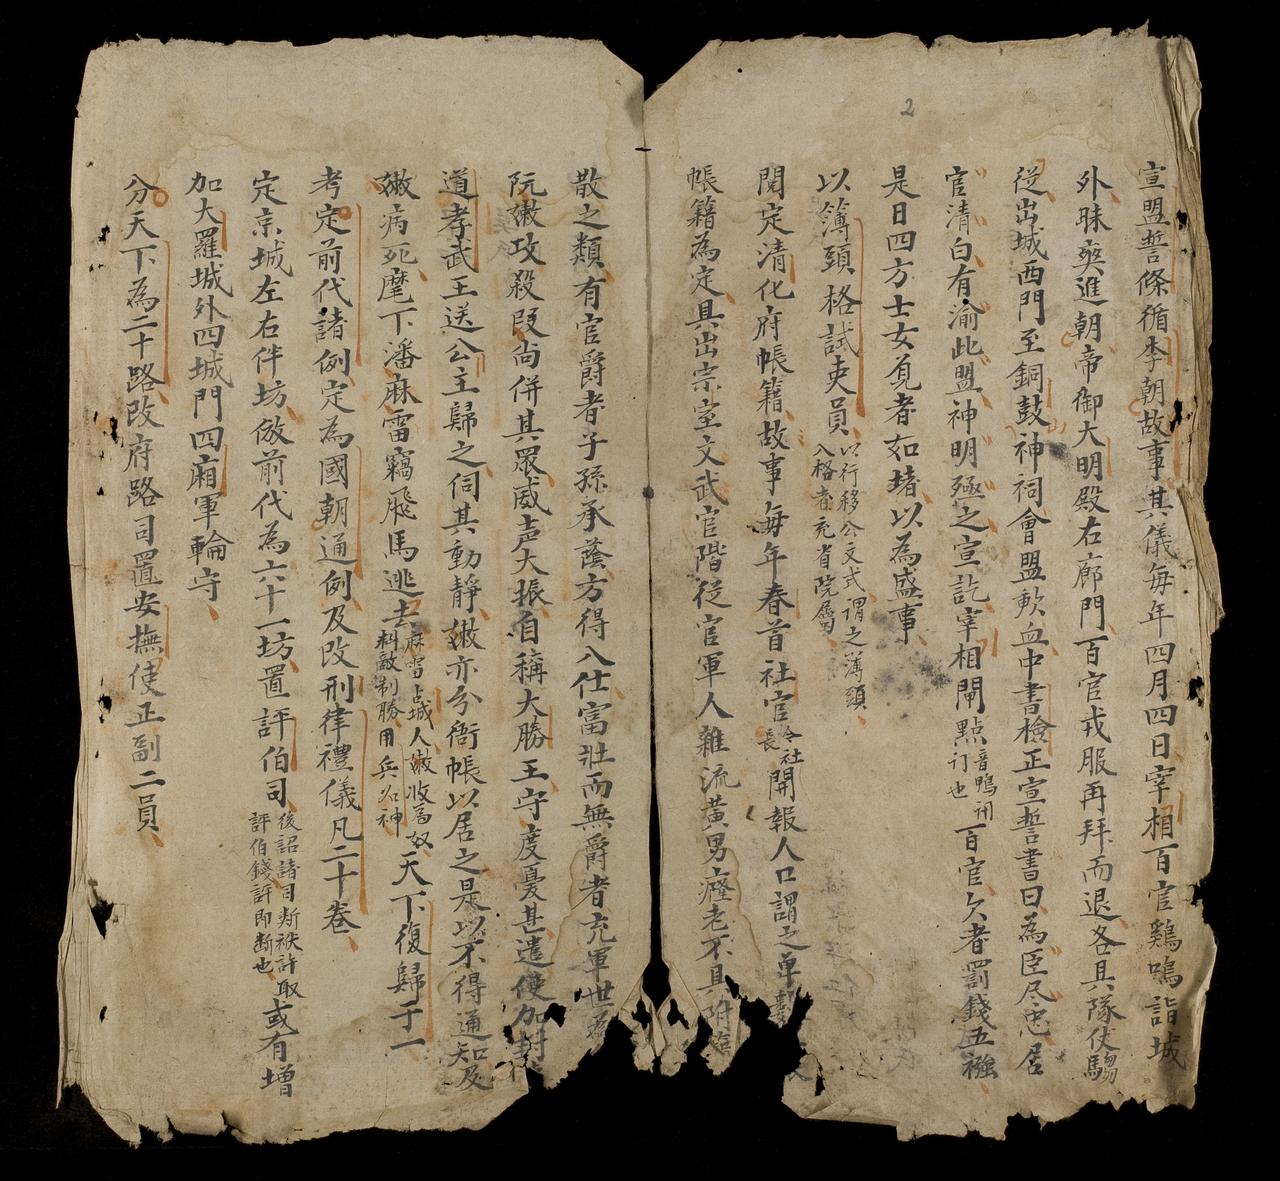 2
宣盟誓條循李朝故事其儀每年四月四日宰相百官鷄鳴詣城
外昧爽進朝帝御大明殿右廊門百官戎服再拜而退各具隊仗騶
從出城西門至銅鼓神祠會盟歃血中書檢正宣誓書曰為臣尽忠居
官清白有渝此盟神明殛之宣訖宰相閘點音鴨刊订也百官欠者罰錢五襁
是日四方士女覓者如堵以為盛事
以簿頭格試吏員以行移公文式謂之薄頭入格者充省院属
閱定清化府帳籍故事每年春首社官今社長開報人口謂之单
帳籍為定具出宗室文武官階從官軍人雜流黃男癃老不具附
散之類有官爵者子孫承蔭方得入仕富壯而無爵者充軍世為
阮嫩攻殺段尚併其眾威声大振自稱大勝王守度憂甚遣使加封
道孝武王送公主歸之伺其動靜嫩亦分衙帳以居之是以不得通知及
嫩病死麾下潘麻雷竊飛馬逃去麻雷占城人嫩收為奴料敵制勝用兵如神天下復歸于一
考定前代諸例定為國朝通例及改刑律禮儀凡二十卷
定京城左右伴坊倣前代為六十一坊置評伯司後詔諸司斷獄許取評伯錢評即断也或有增
加大羅城外四城門四廂軍輪守
分天下為二十路改府路司置安撫使正副二員